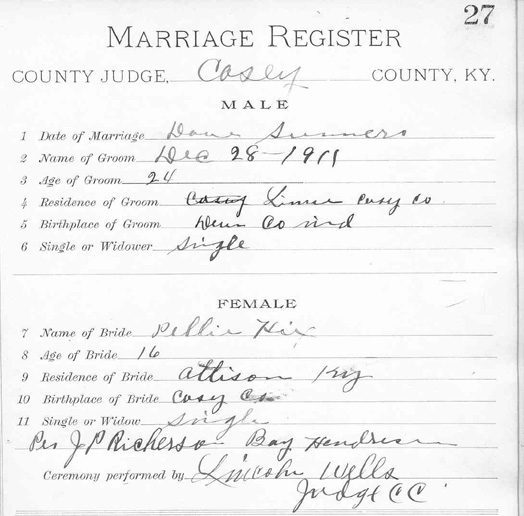 27
MARRIAGE REGISTER
COUNTY JUDGE, Casey COUNTY, KY.
MALE
1 Date of Marriage Summers
2 Name of Groom Dec 28-1911
3 Age of Groom 24
4 Residence of Groom Casey Casey Co
5 Birthplace of Groom Co Ind
6 Single or Widower Single
FEMALE
7 Name of Bride Hix
8 Age of Bride 16
9 Residence of Bride Attison Ky
10 Birthplace of Bride Casey Co
11 Single or Widow Single
Per J P Richerson Bay
Ceremony performed by Lincoln Wells
Judge C C